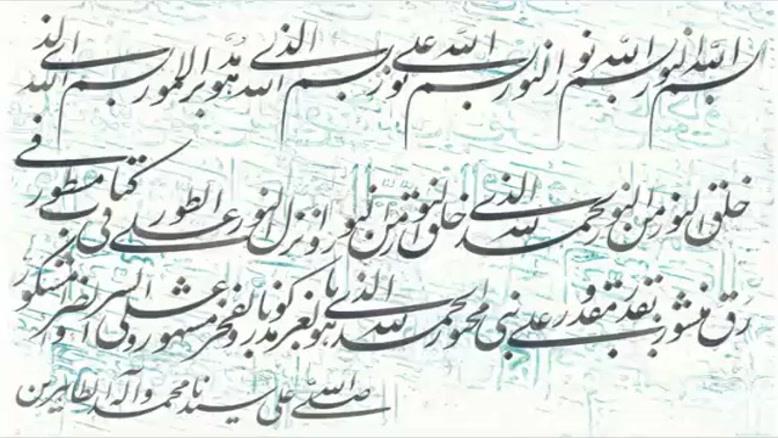 بسم الله النور بسم الله نور النور بسم الله نور على نور بسم الله الذي هو مدبر الامور بسم الله الذي
خلق النور من النور الحمد لله الذي خلق النور من النور و انزل النور على الطور في كتاب مسطور في
رق منشور بقدر مقدور على نبي محبور الحمد لله الذي هو بالعز مذكور و بالفخر مشهور و على السراء و الضراء مشكور
و صلى الله على سيدنا محمد و آله الطاهرين